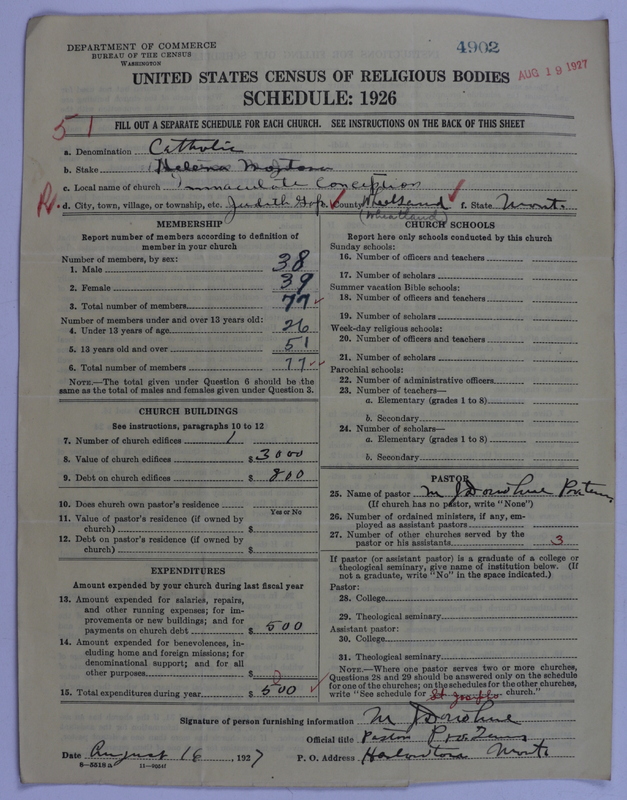 DEPARTMENT OF COMMERCE
BUREAU OF THE CENSUS
WASHINGTON
4902
AUG 19 1927
UNITED STATES CENSUS OF RELIGIOUS BODIES
SCHEDULE: 1926
51
FILL OUT A SEPARATE SCHEDULE FOR EACH CHURCH. SEE INSTRUCTIONS ON THE BACK OF THIS SHEET
a. Denomination Catholic
b. Stake Helena Montana
c. Local name of church Immaculate Conception
d. City, town, village, or township, etc. Judith Gap e. County Wheatland f. State Mont.
(Wheatland)
MEMBERSHIP
Report number of members according to definition of
member in your church
Number of members, by sex:
1. Male 38
2. Female 39
3. Total number of members 77
Number of members under and over 13 years old:
4. Under 13 years of age 26
5. 13 years old and over 51
6. Total number of members 77
NOTE.—The total given under Question 6 should be the
same as the total of males and females given under Question 3.
CHURCH BUILDINGS
See instructions, paragraphs 10 to 12
7. Number of church edifices 1
8. Value of church edifices $ 3000
9. Debt on church edifices $ 800
10. Does church own pastor's residence
Yes or No
11. Value of pastor's residence (if owned by
church) $
12. Debt on pastor's residence (if owned by
church) $
EXPENDITURES
Amount expended by your church during last fiscal year
13. Amount expended for salaries, repairs,
and other running expenses; for im-
provements or new buildings; and for
payments on church debt $ 500
14. Amount expended for benevolences, in-
cluding home and foreign missions; for
denominational support; and for all
other purposes $
15. Total expenditures during year $ 500
CHURCH SCHOOLS
Report here only schools conducted by this church
Sunday schools:
16. Number of officers and teachers
17. Number of scholars
Summer vacation Bible schools:
18. Number of officers and teachers
19. Number of scholars
Week-day religious schools:
20. Number of officers and teachers
21. Number of scholars
Parochial schools:
22. Number of administrative officers
23. Number of teachers—
a. Elementary (grades 1 to 8)
b. Secondary
24. Number of scholars—
a. Elementary (grades 1 to 8)
b. Secondary
PASTOR
25. Name of pastor M J Donohue Protem
(If church has no pastor, write "None")
26. Number of ordained ministers, if any, em-
ployed as assistant pastors
27. Number of other churches served by the
pastor or his assistants 3
If pastor (or assistant pastor) is a graduate of a college or
theological seminary, give name of institution below. (If
not a graduate, write "No" in the space indicated.)
Pastor:
28. College
29. Theological seminary
Assistant pastor:
30. College
31. Theological seminary
NOTE.—Where one pastor serves two or more churches,
Questions 28 and 29 should be answered only on the schedule
for one of the churches; on the schedules for the other churches,
write "See schedule for St Josephs church."
Signature of person furnishing information M J Donohue
Official title Pastor Pro Tem
Date August 16, 1927 P. O. Address Harlowton Mont.
8—5518 a